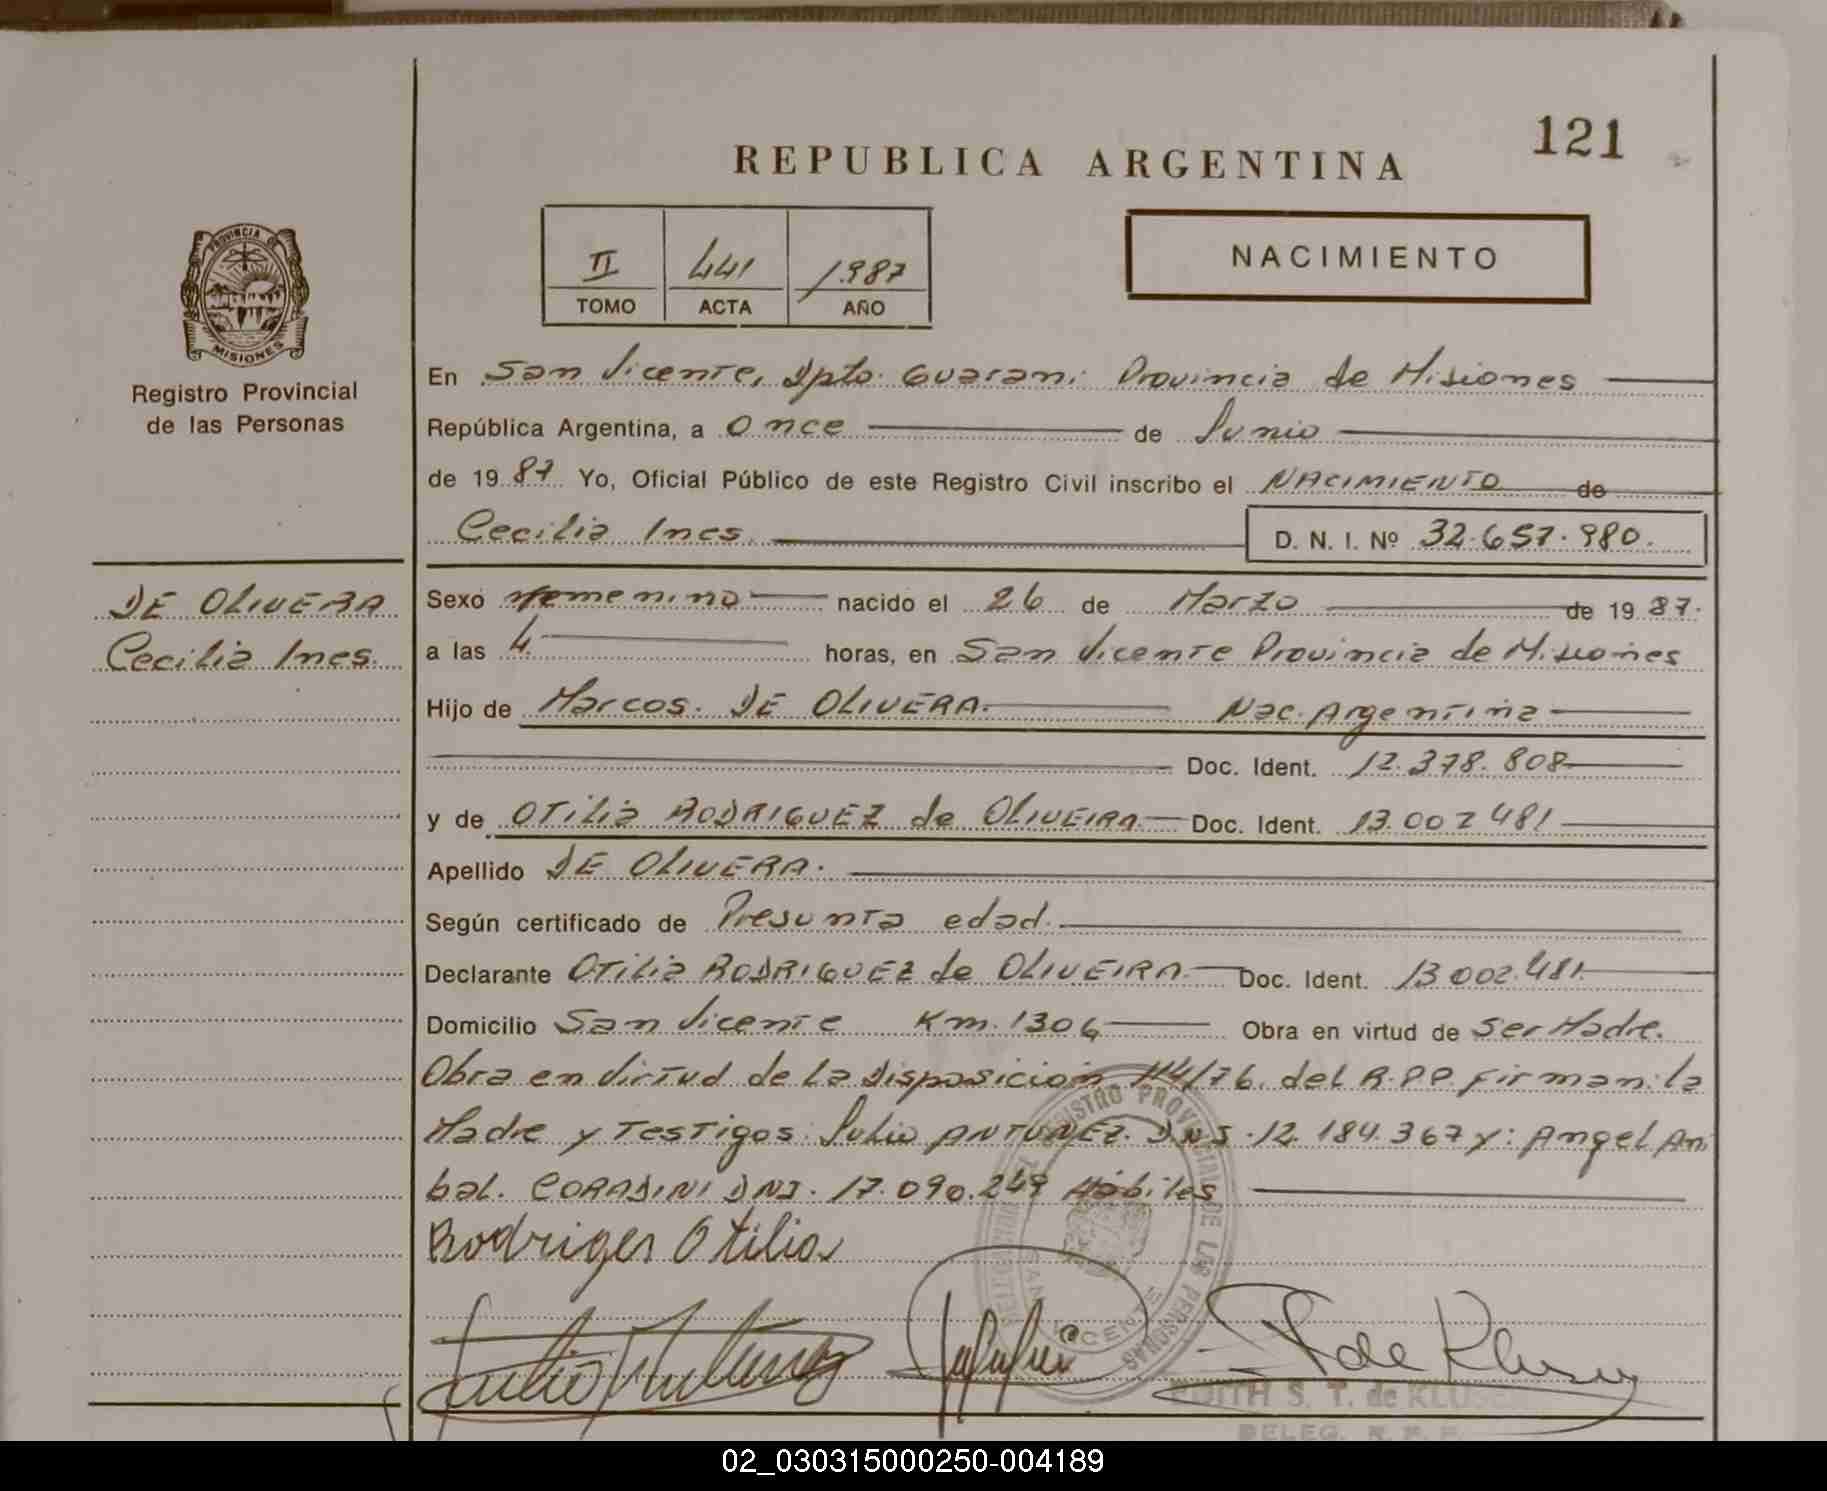 121
REPUBLICA ARGENTINA
II 441 1.987
TOMO ACTA AÑO
NACIMIENTO
PROVINCIA DE
MISIONES
Registro Provincial
de las Personas
DE OLIVERA
Cecilia Ines.
En San Vicente, Dpto. Guarani Provincia de Misiones
República Argentina, a Once de Junio
de 1987 Yo, Oficial Público de este Registro Civil inscribo el NACIMIENTO de
Cecilia Ines. D. N. I. Nº 32.657.980.
Sexo femenino nacido el 26 de Marzo de 1987.
a las 4 horas, en San Vicente Provincia de Misiones
Hijo de Marcos. DE OLIVERA. Nac. Argentina
Doc. Ident. 12.378.808
y de OTilia RODRIGUEZ de OLIVEIRA Doc. Ident. 13.002 481
Apellido DE OLIVERA.
Según certificado de Presunta edad.
Declarante OTilia RODRIGUEZ de OLIVEIRA Doc. Ident. 13 002.481
Domicilio San Vicente Km. 1306 Obra en virtud de ser Madre.
Obra en Virtud de la Disposicion 114/76. del R.P.P. firman: la
Madre y Testigos: Julio ANTUNEZ. DNI. 12.184.367 y: Angel Ani
bal. CORADINI DNI. 17.090.249 Habiles
Rodriges Otilia
REGISTRO PROVINCIAL DE LAS PERSONAS
SAN VICENTE
Julio Antunez
ST de Klusen
EDITH S. T. de KLUSEN
DELEG. R. P. P.
02_030315000250-004189